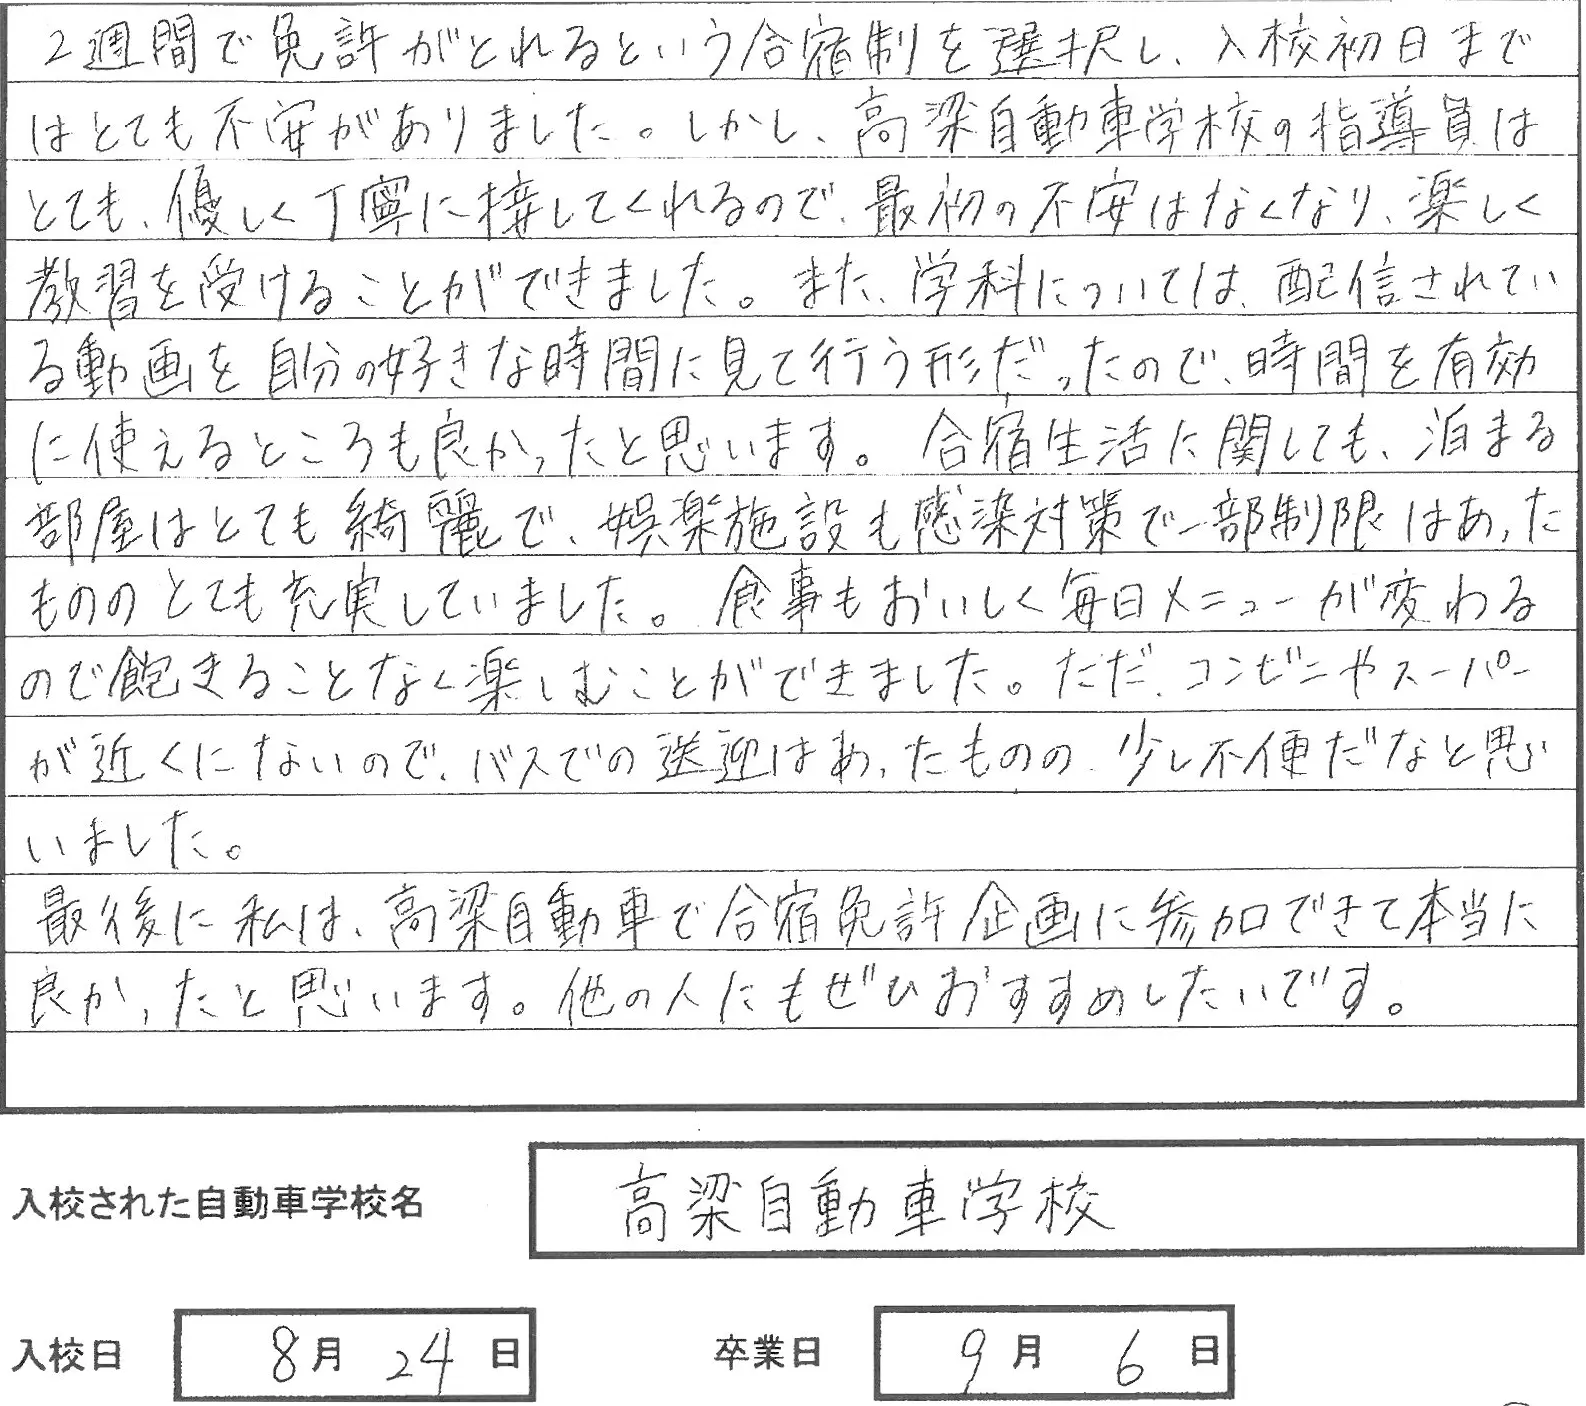 2週間で免許がとれるという合宿制を選択し、入校初日まで
はとても不安がありました。しかし、高梁自動車学校の指導員は
とても、優しく丁寧に接してくれるので、最初の不安はなくなり、楽しく
教習を受けることができました。また、学科については、配信されてい
る動画を自分の好きな時間に見て行う形だったので、時間を有効
に使えるところも良かったと思います。合宿生活に関しても、泊まる
部屋はとても綺麗で、娯楽施設も感染対策で一部制限はあった
もののとても充実していました。食事もおいしく毎日メニューが変わる
ので飽きることなく楽しむことができました。ただ、コンビニやスーパー
が近くにないので、バスでの送迎はあったものの、少し不便だなと思
いました。
最後に私は、高梁自動車で合宿免許企画に参加できて本当に
良かったと思います。他の人にもぜひおすすめしたいです。
入校された自動車学校名 高梁自動車学校
入校日 8月24日 卒業日 9月6日